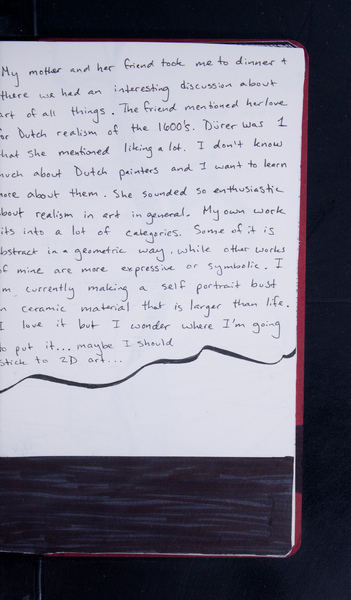 My mother and her friend took me to dinner +
there we had an interesting discussion about
art of all things. The friend mentioned her love
for Dutch realism of the 1600's. Dürer was 1
that she mentioned liking a lot. I don't know
much about Dutch painters and I want to learn
more about them. She sounded so enthusiastic
about realism in art in general. My own work
fits into a lot of categories. Some of it is
abstract in a geometric way, while other works
of mine are more expressive or symbolic. I
m currently making a self portrait bust
in ceramic material that is larger than life.
I love it but I wonder where I'm going
to put it... maybe I should
stick to 2D art...